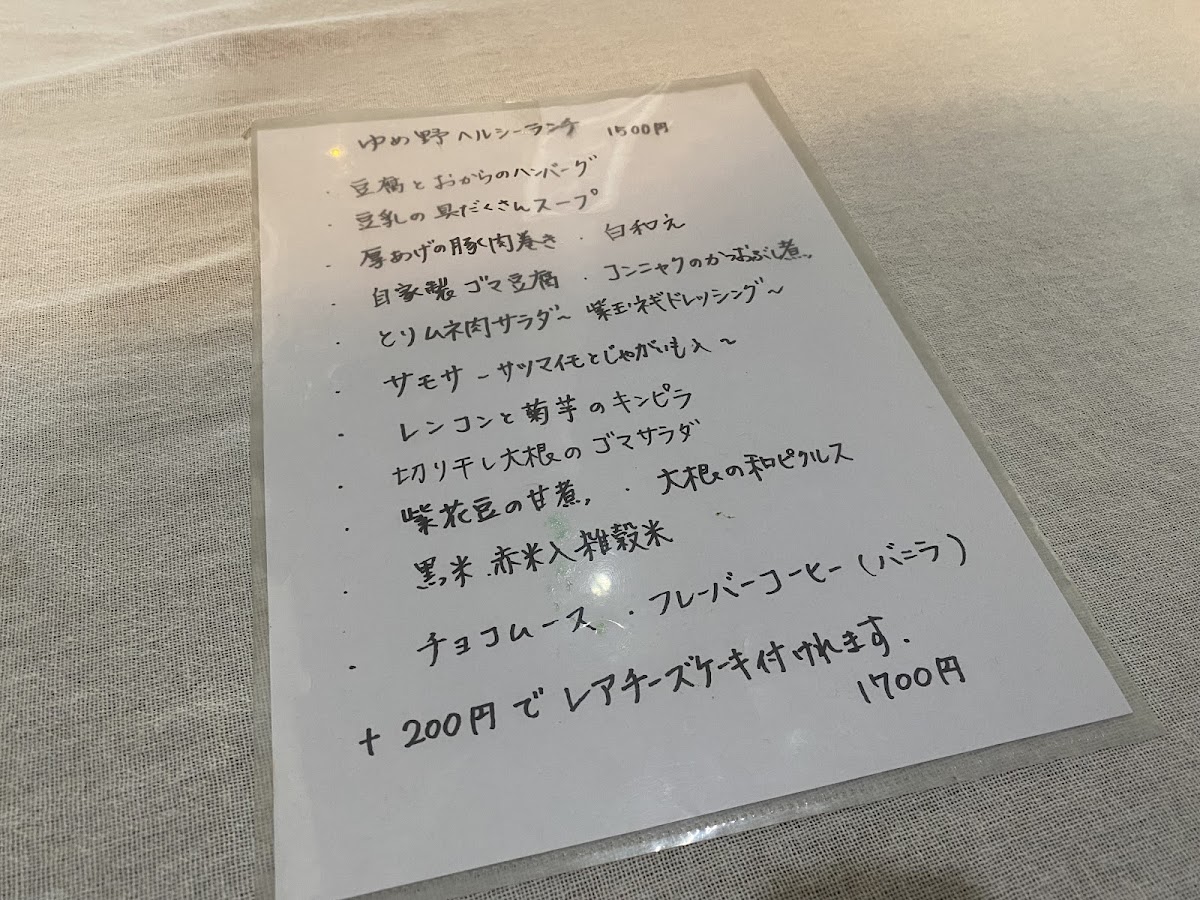 ゆめ野 ヘルシーランチ 1500円
・豆腐とおからのハンバーグ
・豆乳の具だくさんスープ
・厚あげの豚肉巻き ・白和え
・自家製ゴマ豆腐 ・コンニャクのかつおぶし煮
・とりムネ肉サラダ〜紫玉ネギドレッシング〜
・サモサ〜サツマイモとじゃがいも入〜
・レンコンと菊芋のキンピラ
・切り干し大根のゴマサラダ
・紫花豆の甘煮 ・大根の和ピクルス
・黒米.赤米入雑穀米
・チョコムース ・フレーバーコーヒー(バニラ)
+200円でレアチーズケーキ付けれます.
1700円